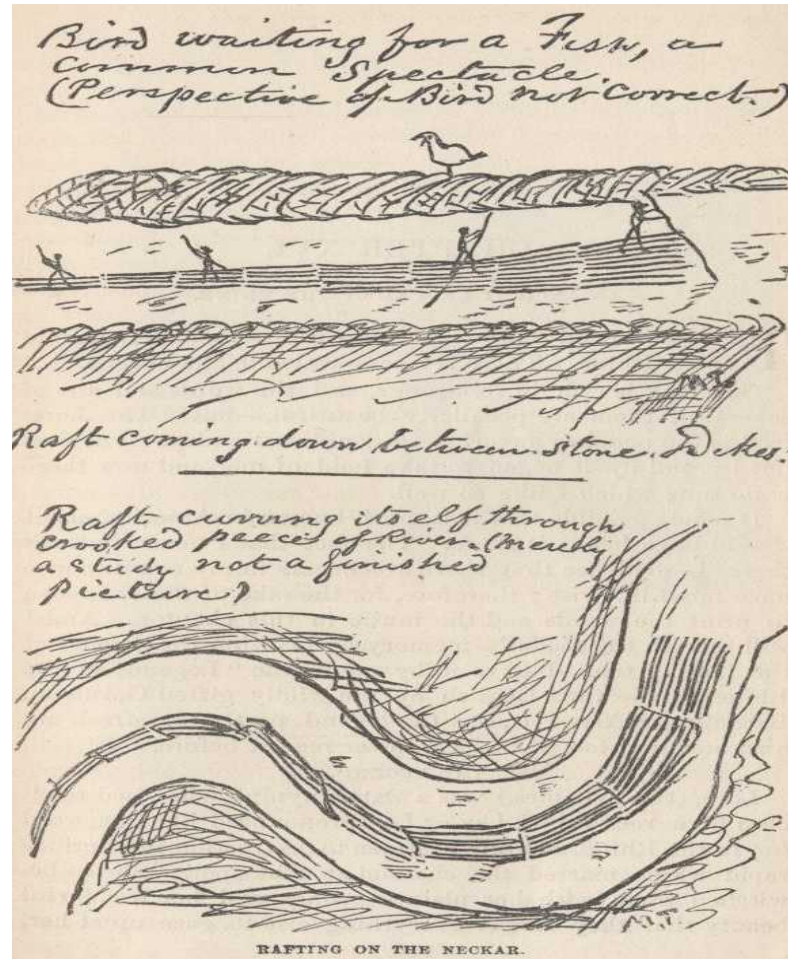 Bird waiting for a Fish, a
common Spectacle.
(Perspective of Bird not Correct.)
M.T.
Raft coming down between stone Dikes.
Raft curving itself through
crooked peece of River. (Merely
a study not a finished
picture.)
M.T.
RAFTING ON THE NECKAR.